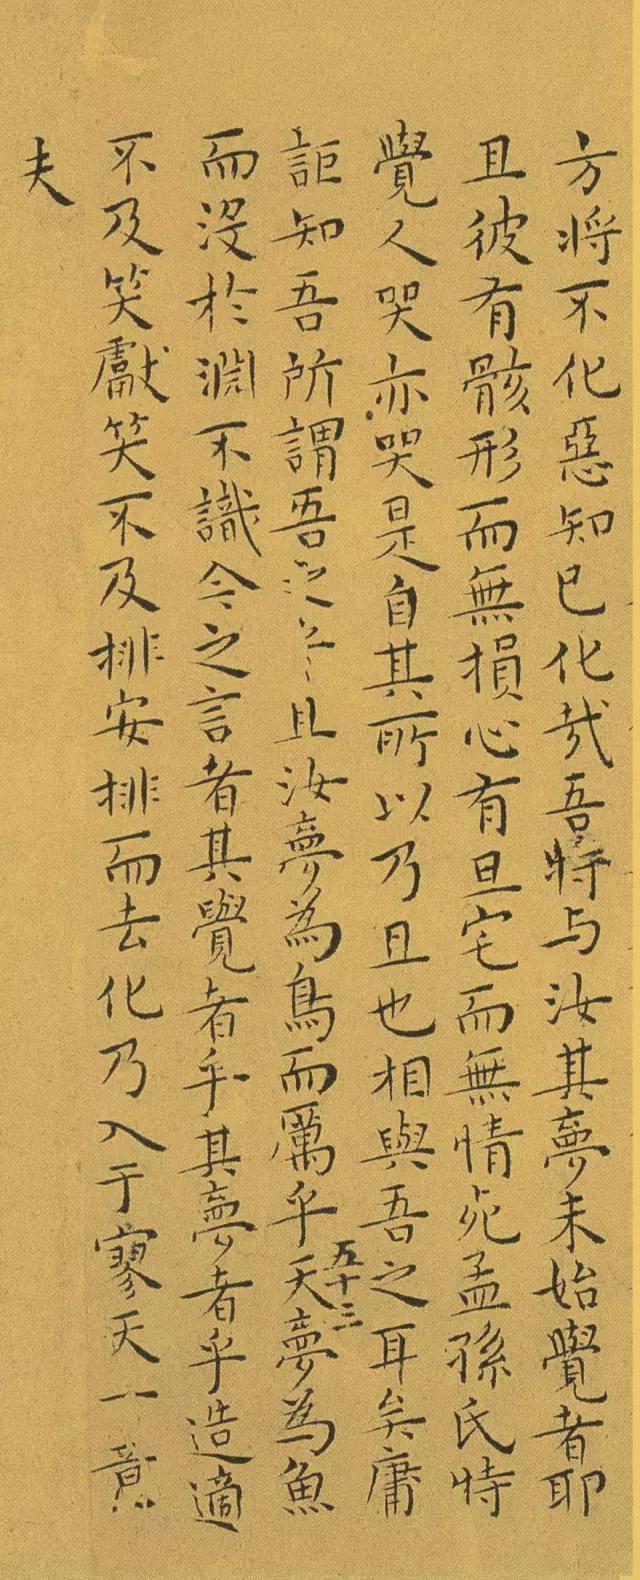 方将不化惡知已化哉吾特与汝其夢未始覺者耶
且彼有骸形而無損心有旦宅而無情死孟孫氏特
覺人哭亦哭是自其所以乃且也相與吾之耳矣庸
五十三
詎知吾所謂吾之乎且汝夢為鳥而厲乎天夢為魚
而没於淵不識今之言者其覺者乎其夢者乎造適
不及笑獻笑不及排安排而去化乃入于寥天一意
夫